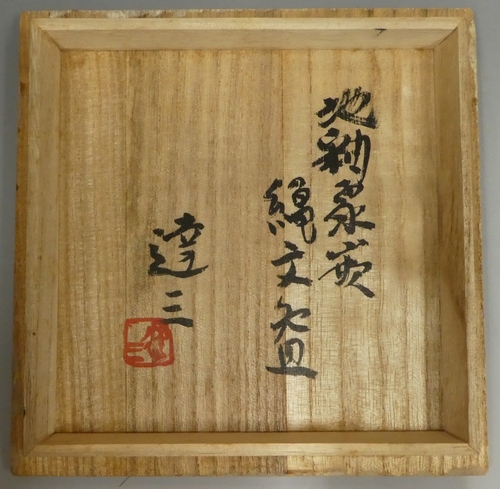 地釉象嵌
縄文盌
達三